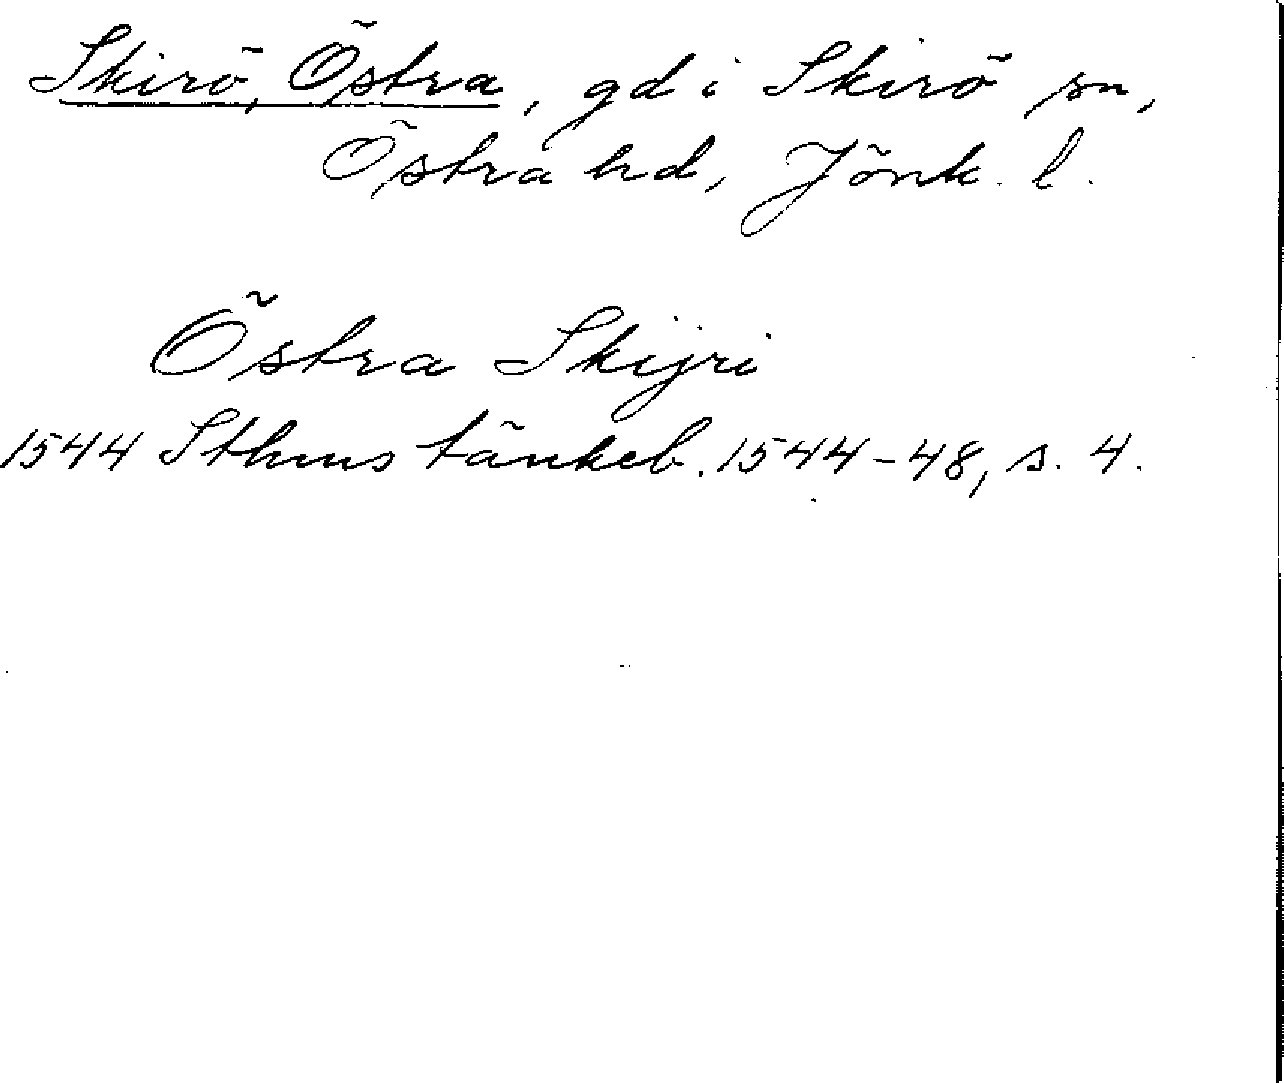 Skirö, Östra, gd i Skirö sn,
Östra hd, Jönk. l.
Östra Skijri
1544 Sthms tänkeb. 1544-48, s. 4.